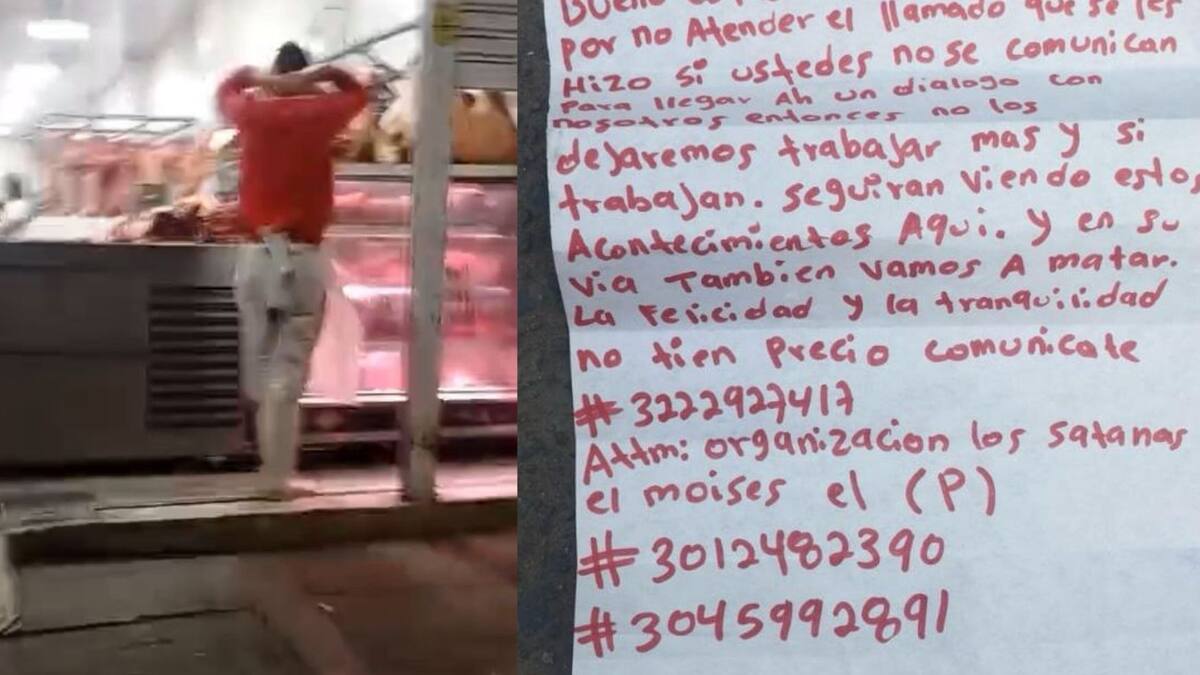 por no Atender el llamado que se les
Hizo si ustedes no se comunican
Para llegar Ah un dialogo con
nosotros entonces no los
dejaremos trabajar mas y si
trabajan. seguiran viendo estos
Acontecimientos Aqui. y en su
via Tambien vamos A matar.
La Felicidad y la tranquilidad
no tien Precio comunicate
#3222927417
Attm: organizacion los satanas
el moises el (P)
#3012482390
#3045992891